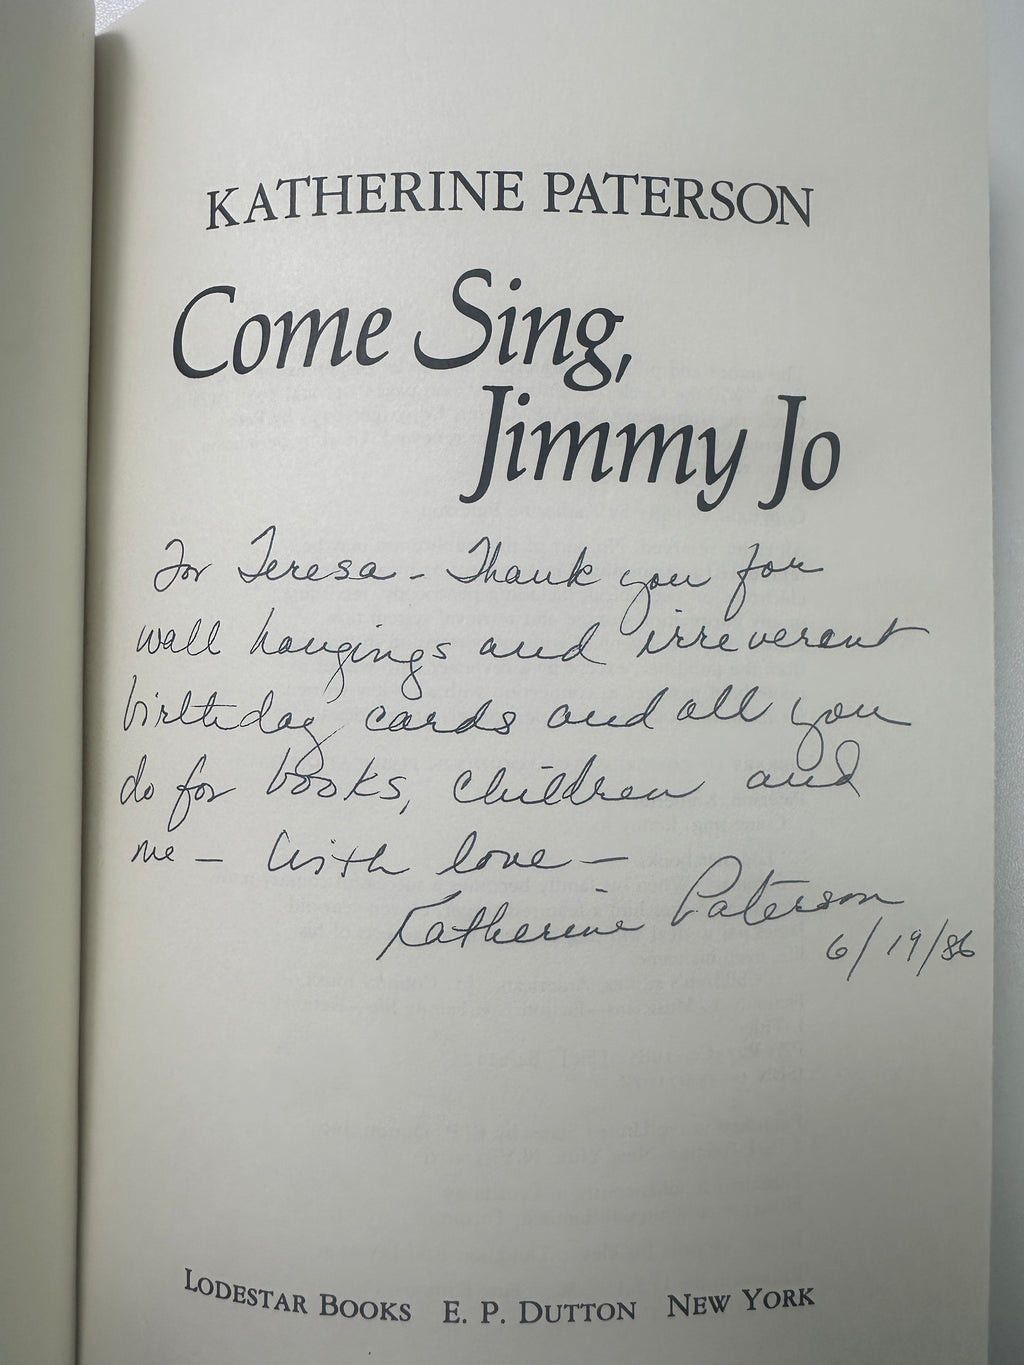 KATHERINE PATERSON
Come Sing,
Jimmy Jo
For Teresa - Thank you for
wall hangings and irreverent
birthday cards and all you
do for books, children and
me — with love —
Katherine Paterson
6/19/86
LODESTAR BOOKS E. P. DUTTON NEW YORK